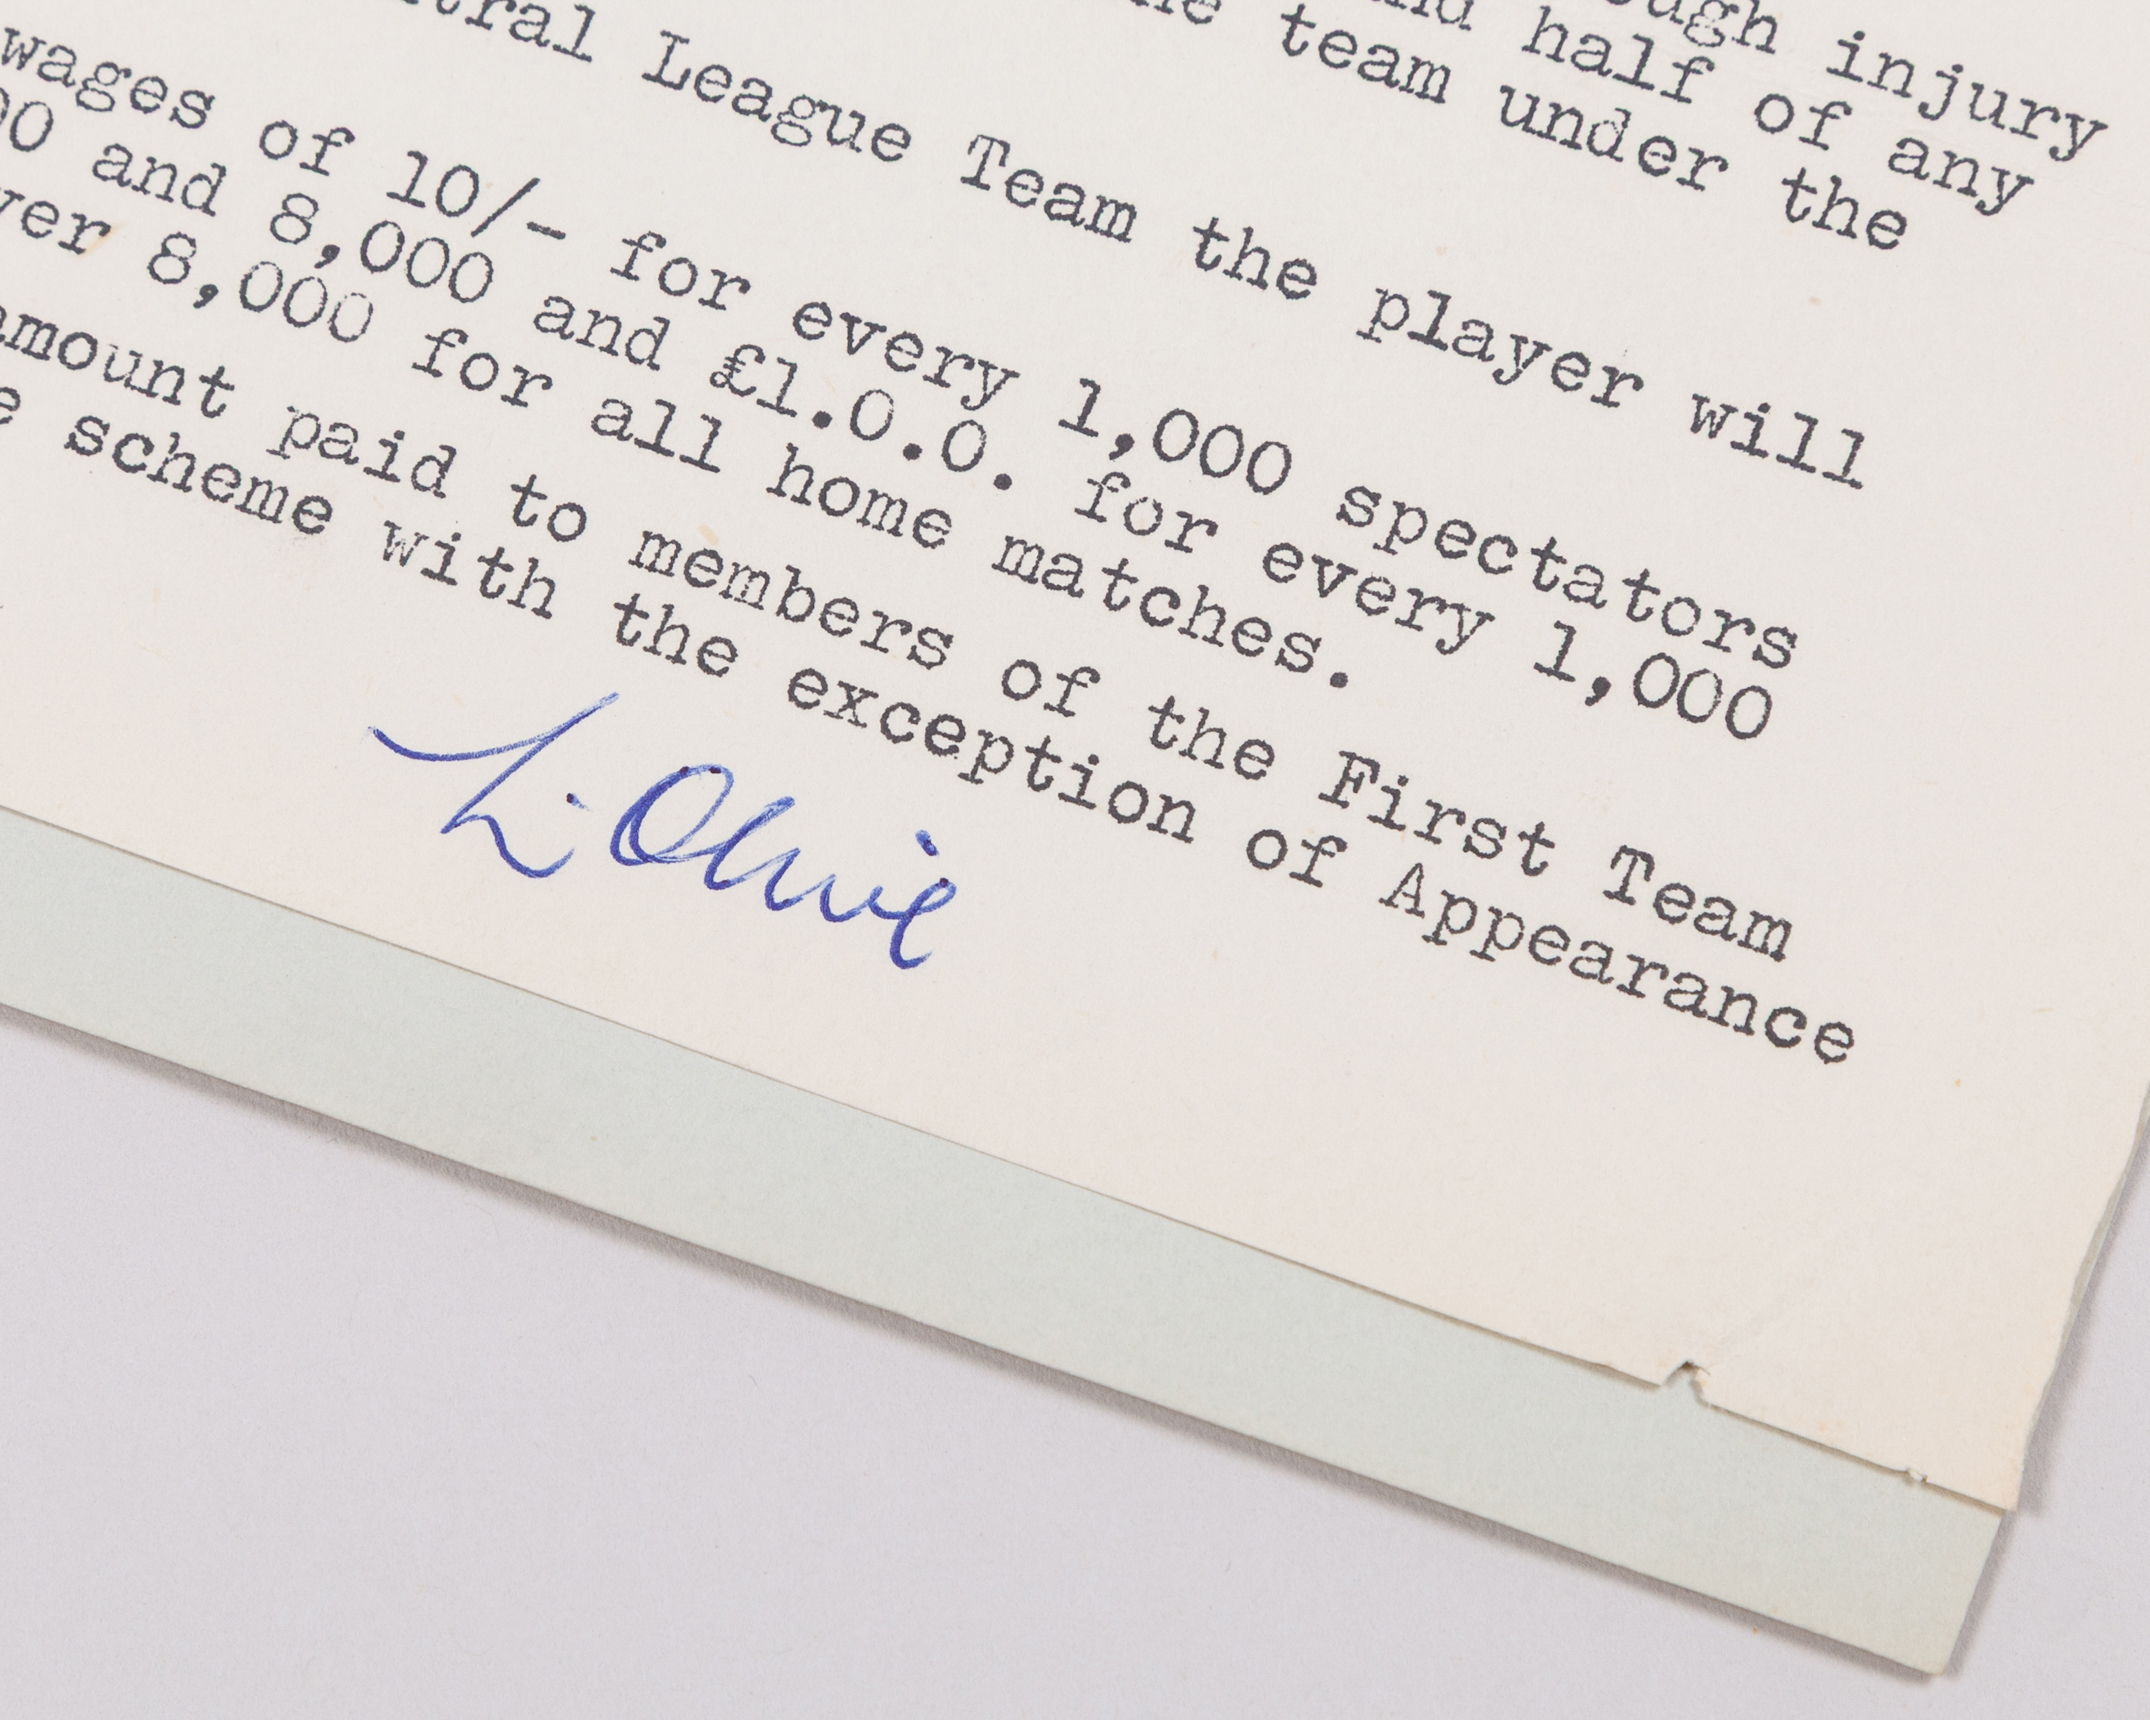 ough injury
nd half of any
he team under the
tral League Team the player will
wages of 10/- for every 1,000 spectators
00 and 8,000 and £1.0.0. for every 1,000
ver 8,000 for all home matches.
amount paid to members of the First Team
e scheme with the exception of Appearance
L. Olive